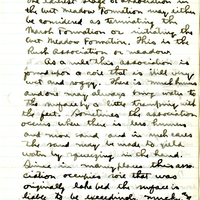 the earliest stage of association in
the Wet Meadow Formation may either
be considered as terminating the
Marsh Formation or initiating the
Wet Meadow Formation. This is the
Rush Association or meadow.
As a rule this association is
found upon a soil that is still very
wet and soggy. There is much humus
and one may always bring water to
the surface by a little tramping with
the feet. Sometimes the association
occurs when there is less humus
and more sand and in such cases
the sand may be made to yield
water by squeezing in the hand.
Since in many places this asso-
ciation occupies soil that was
originally lake bed the surface is
liable to be exceedingly mucky